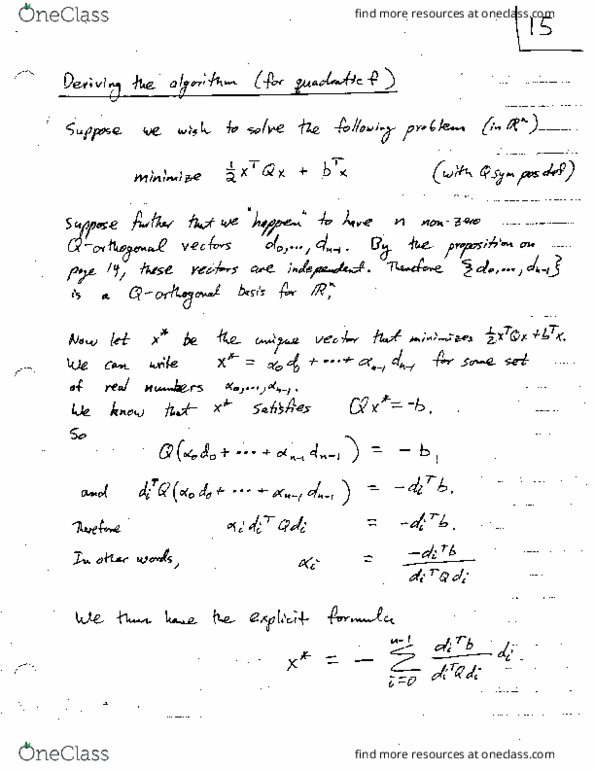 OneClass
find more resources at oneclass.com
15
Deriving the algorithm (for quadratic f)
Suppose we wish to solve the following problem (in ℝⁿ)
minimize ½xᵀQx + bᵀx (with Q sym pos def)
Suppose further that we "happen" to have n non-zero
Q-orthogonal vectors d₀,..., dₙ₋₁. By the proposition on
page 14, these vectors are independent. Therefore {d₀,..., dₙ₋₁}
is a Q-orthogonal basis for ℝⁿ.
Now let x* be the unique vector that minimizes ½xᵀQx+bᵀx.
We can write x* = α₀d₀ + ⋯ + αₙ₋₁dₙ₋₁ for some set
of real numbers α₀,...,αₙ₋₁.
We know that x* satisfies Qx* = -b.
So
Q(α₀d₀ + ⋯ + αₙ₋₁dₙ₋₁) = -b,
and dᵢᵀQ(α₀d₀ + ⋯ + αₙ₋₁dₙ₋₁) = -dᵢᵀb.
Therefore αᵢdᵢᵀQdᵢ = -dᵢᵀb.
In other words, αᵢ = -dᵢᵀb / dᵢᵀQdᵢ
We thus have the explicit formula
x* = - ∑ᵢ₌₀ⁿ⁻¹ dᵢᵀb / dᵢᵀQdᵢ dᵢ.
OneClass
find more resources at oneclass.com